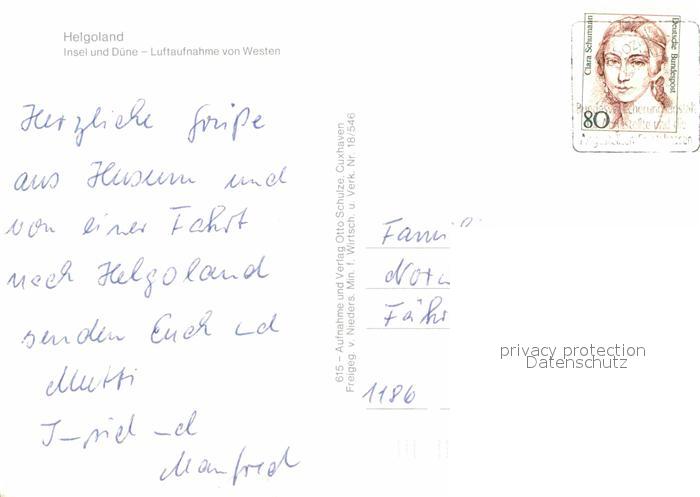 Helgoland
Insel und Düne – Luftaufnahme von Westen
Clara Schumann
Deutsche Bundespost
80
Herzliche Grüße
aus Husum und
von einer Fahrt
nach Helgoland
senden Euch und
Mutti
Ingrid und
Manfred
615 – Aufnahme und Verlag Otto Schulze, Cuxhaven
Freigeg. v. Nieders. Min. f. Wirtsch. u. Verk. Nr. 18/546
Fami
Fähr
1186
privacy protection
Datenschutz